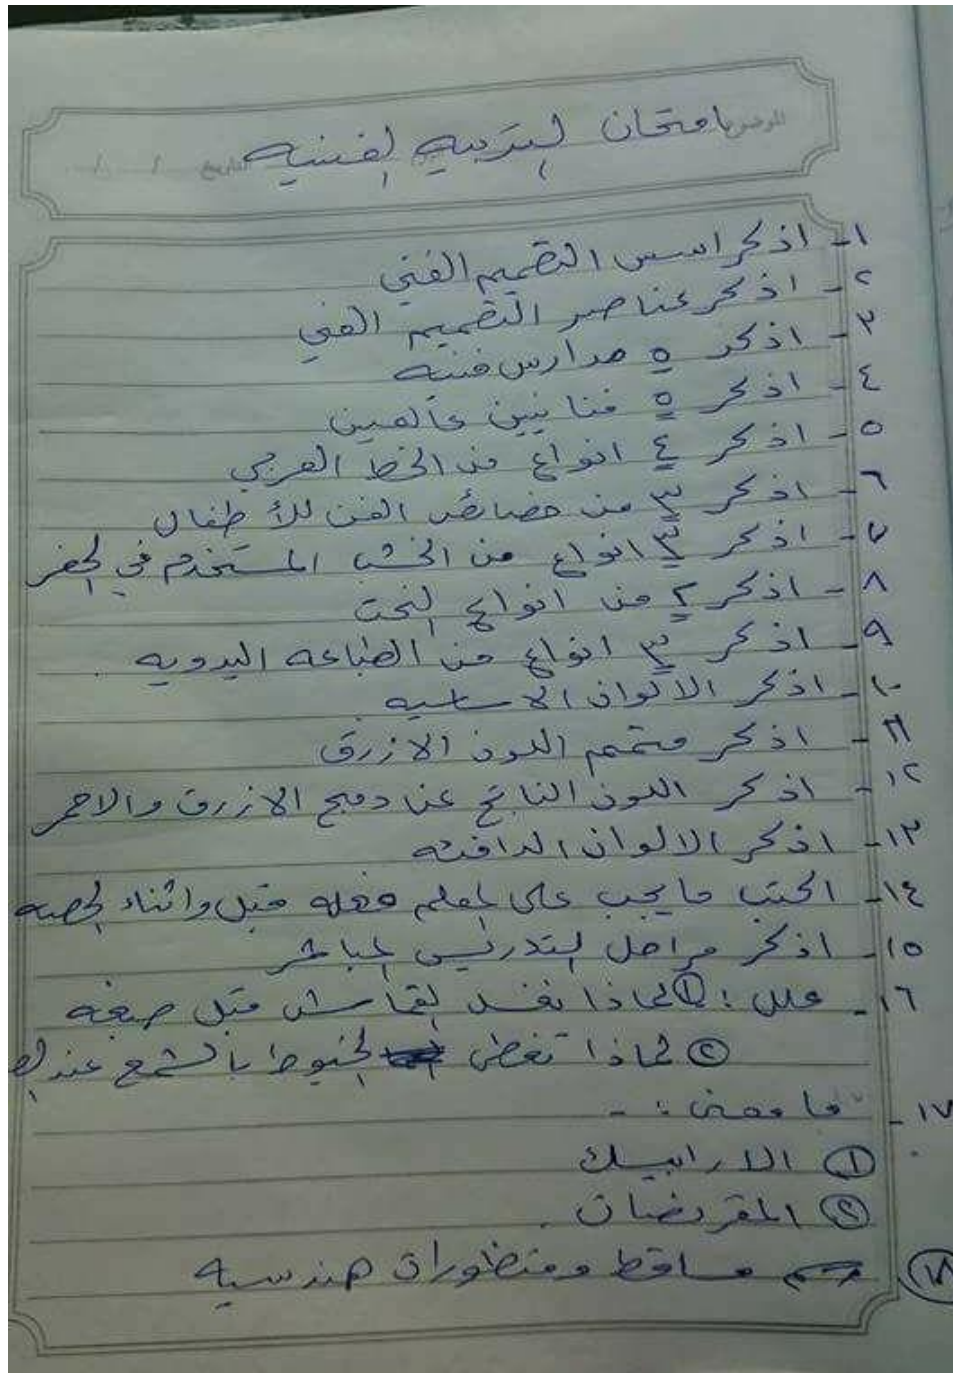 امتحان التربيه الفنيه
١- اذكر اسس التصميم الفني
٢- اذكر عناصر التصميم الفني
٣- اذكر ٥ مدارس فنيه
٤- اذكر ٥ فنانيين عالمين
٥- اذكر ٤ انواع من الخط العربي
٦- اذكر ٣ من خصائص الفن للأطفال
٧- اذكر ٣ انواع من الخشب المستخدم في الحفر
٨- اذكر ٢ من انواع النحت
٩- اذكر ٣ انواع من الطباعه اليدويه.
١٠- اذكر الالوان الاساسيه.
١١- اذكر متمم اللون الازرق
١٢- اذكر اللون الناتج عن دمج الازرق والاحمر
١٣- اذكر الالوان الدافئه
١٤- اكتب ما يجب على المعلم فعله قبل واثناء الحصه
١٥- اذكر مراحل التدريس المباشر
١٦- علل: ① لماذا نغسل القماش قبل صبغه
② لماذا تغطى الخيوط بالشمع عند
١٧- ما معنى :-
① الارابيسك
② المقرنصات.
⑱ رسم مساقط ومنظورات هندسيه